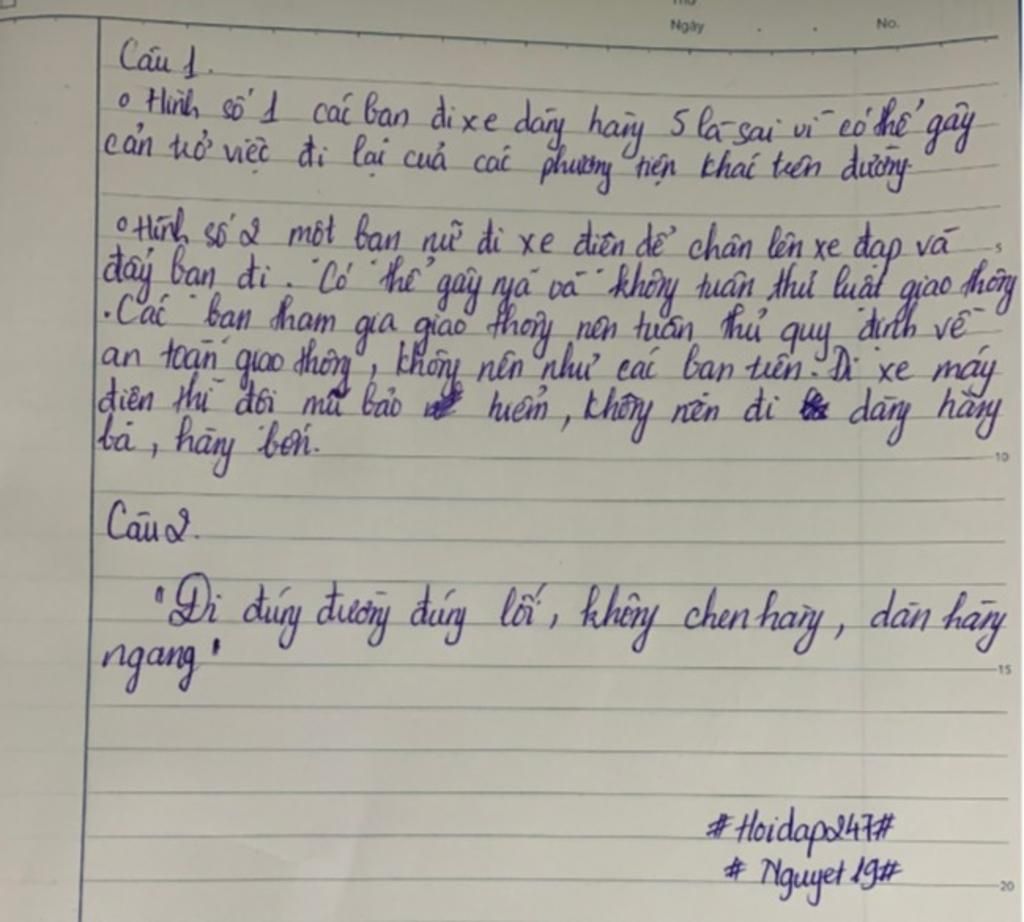 Thứ
Ngày . . No.
Câu 1.
o Hình số 1 các bạn đi xe dàng hàng 5 là sai vì có thể gây
cản trở việc đi lại của các phương tiện khác trên đường
o Hình số 2 một bạn nữ đi xe điện để chân lên xe đạp và
5
đẩy bạn đi. Có thể gây ngã và không tuân thủ luật giao thông
. Các bạn tham gia giao thông nên tuân thủ quy định về
an toàn giao thông, không nên như các bạn trên. Đi xe máy
điện thì đôi mũ bảo hiểm, không nên đi dàng hàng
ba, hàng bốn.
10
Câu 2.
"Đi đúng đường đúng lối, không chen hàng, dàn hàng
ngang"
15
#Hoidap247#
# Nguyet 19#
20